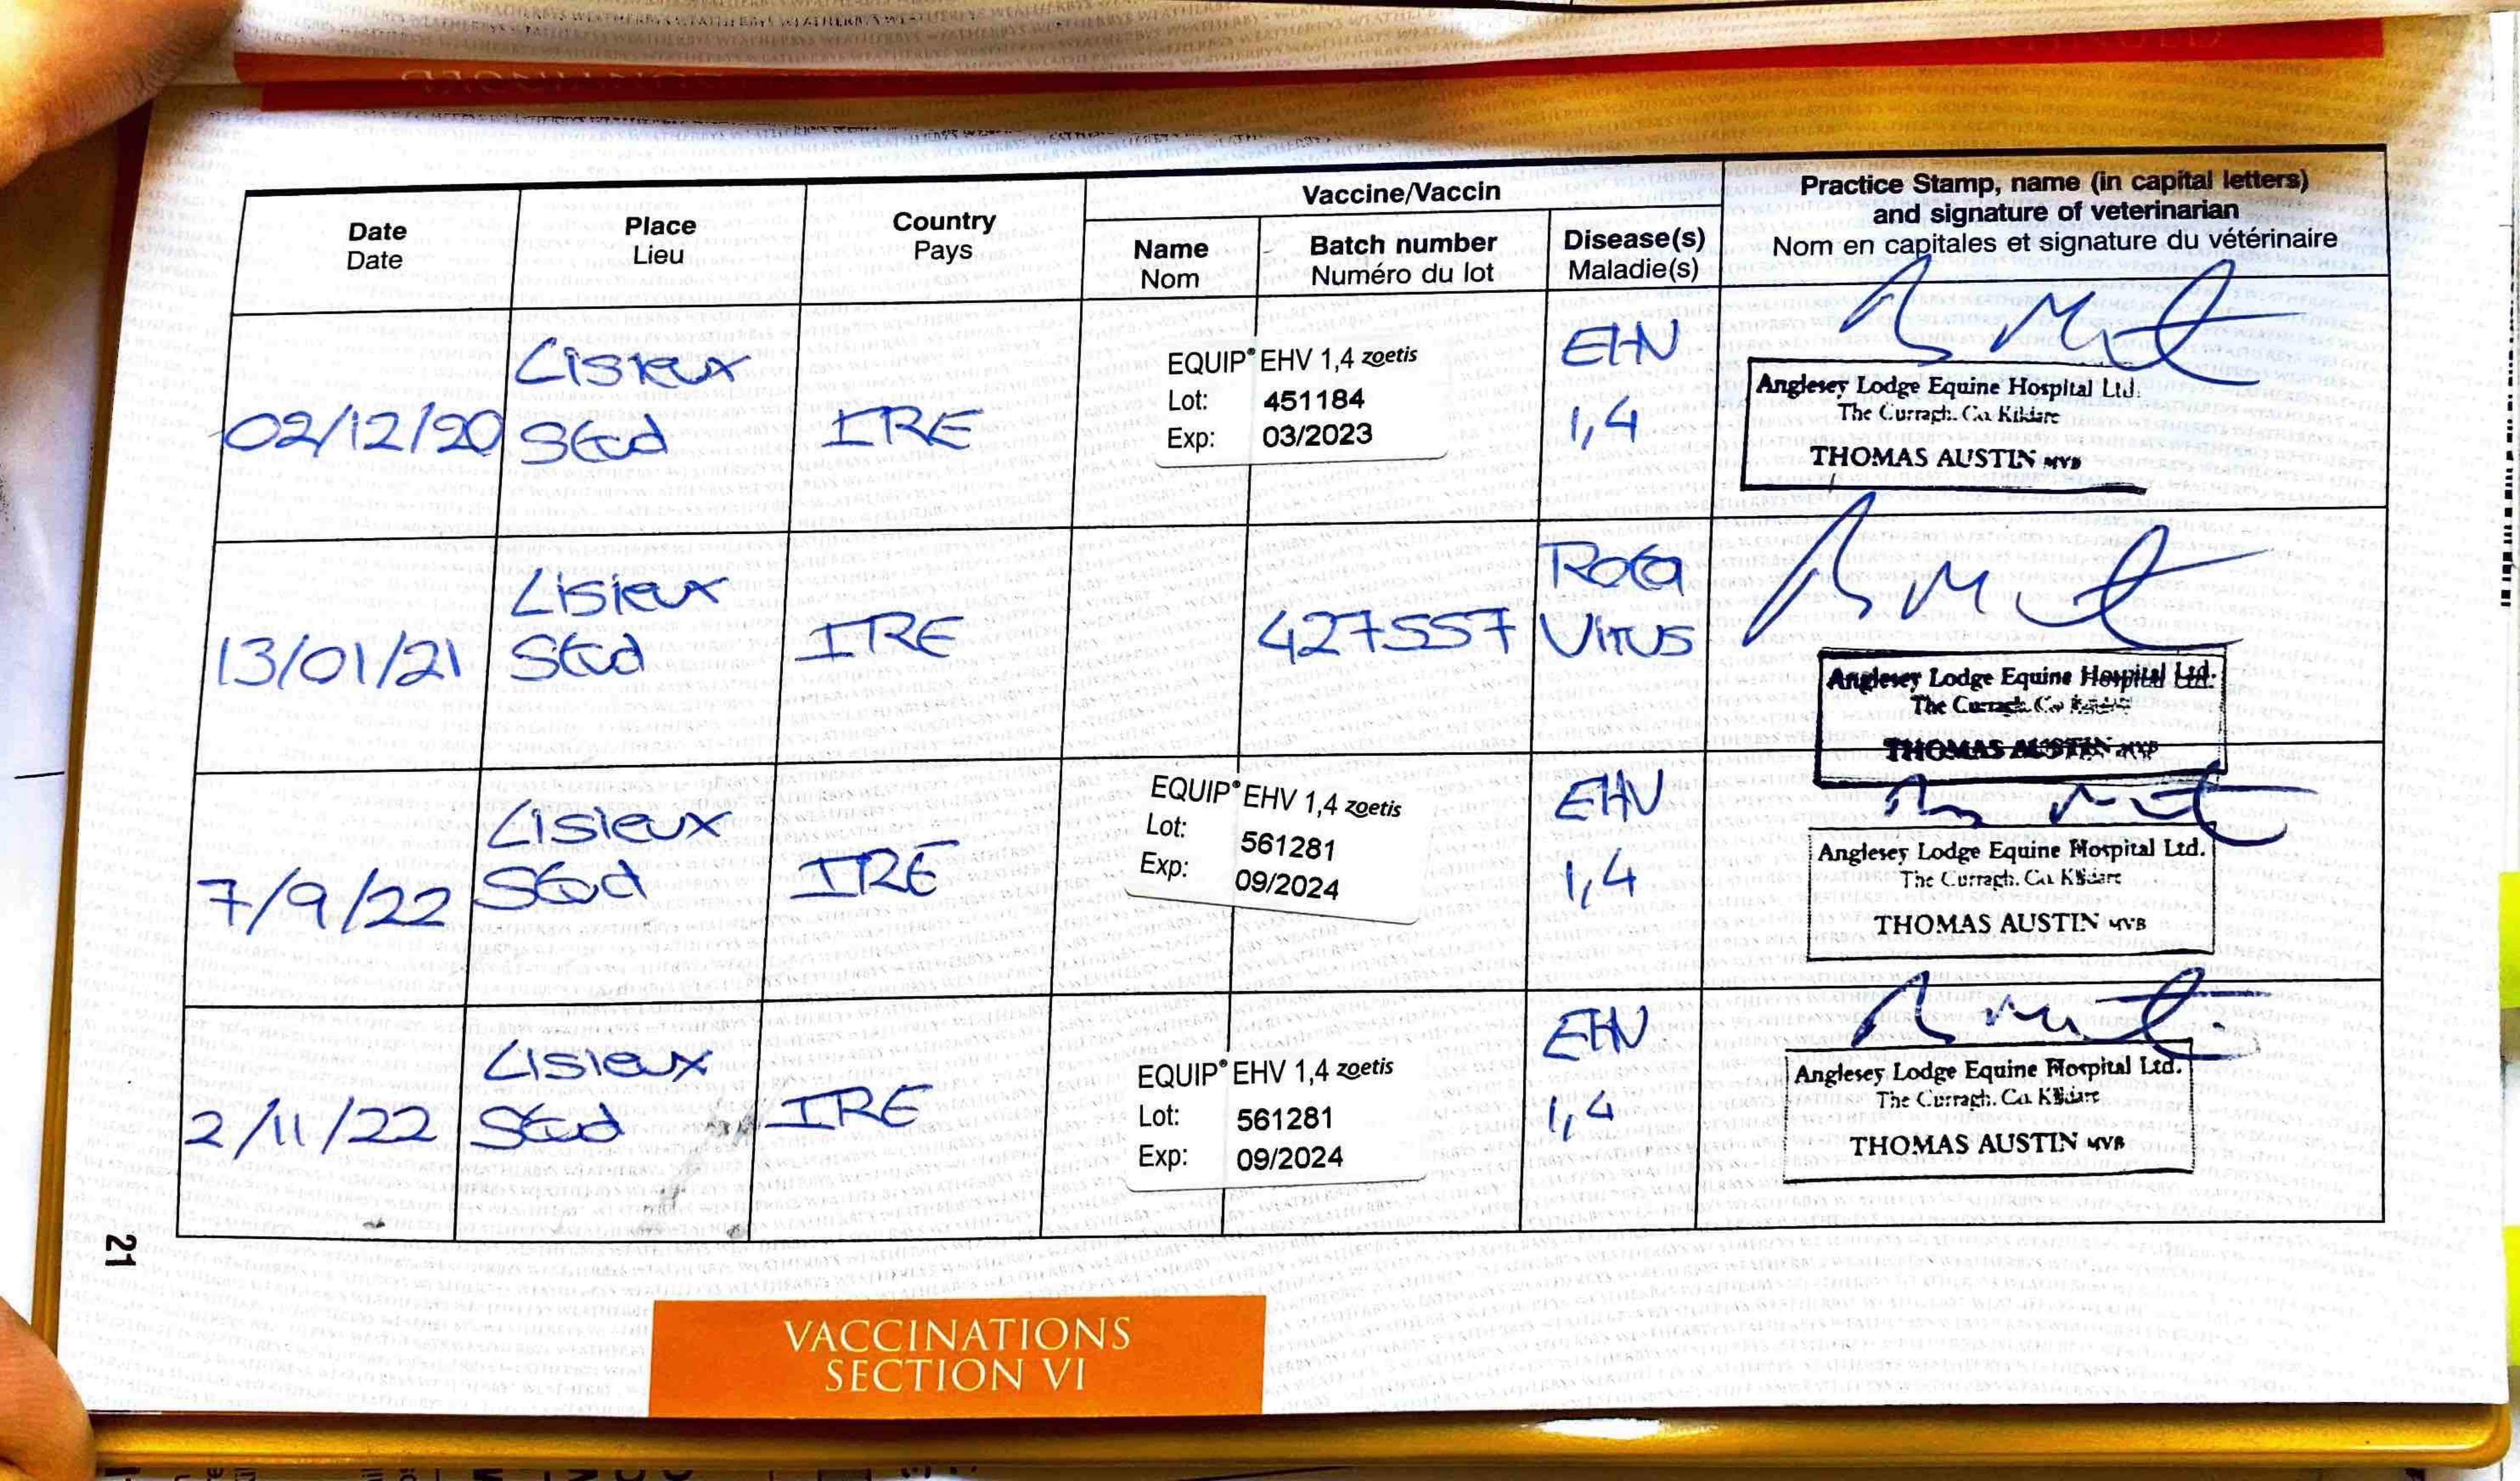 Date
Date
Place
Lieu
Country
Pays
Vaccine/Vaccin
Name
Nom
Batch number
Numéro du lot
Disease(s)
Maladie(s)
Practice Stamp, name (in capital letters)
and signature of veterinarian
Nom en capitales et signature du vétérinaire
02/12/20
Lisieux
Stud
IRE
EQUIP® EHV 1,4 zoetis
Lot: 451184
Exp: 03/2023
EHV
1,4
Anglesey Lodge Equine Hospital Ltd.
The Curragh. Co. Kildare
THOMAS AUSTIN MVB
13/01/21
Lisieux
Stud
IRE
427557
Rota
Virus
Anglesey Lodge Equine Hospital Ltd.
The Curragh. Co Kildare
THOMAS AUSTIN MVB
7/9/22
Lisieux
Stud
IRE
EQUIP® EHV 1,4 zoetis
Lot: 561281
Exp: 09/2024
EHV
1,4
Anglesey Lodge Equine Hospital Ltd.
The Curragh. Co. Kildare
THOMAS AUSTIN MVB
2/11/22
Lisieux
Stud
IRE
EQUIP® EHV 1,4 zoetis
Lot: 561281
Exp: 09/2024
EHV
1,4
Anglesey Lodge Equine Hospital Ltd.
The Curragh. Co. Kildare
THOMAS AUSTIN MVB
21
VACCINATIONS
SECTION VI